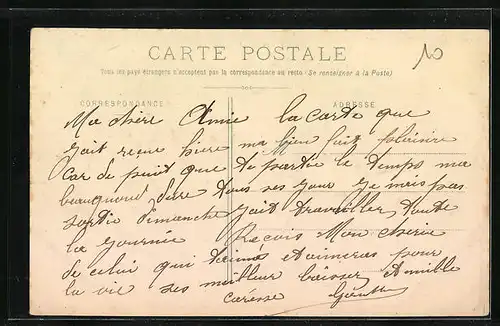 10
CARTE POSTALE
Tous les pays étrangers n'acceptent pas la correspondance au recto (Se renseigner à la Poste)
CORRESPONDANCE ADRESSE
Ma chère Amie la carte que
jait reçue hiere ma bien fait plaisire
car de puit que te partie le temps ma
dure tous ses jour je mais pas
sortie dimanche jait travailler toute
la journée Recois Mon cherie
de celui qui t'aimes et aimeras pour
la vie ses meilleur baisser
caresse